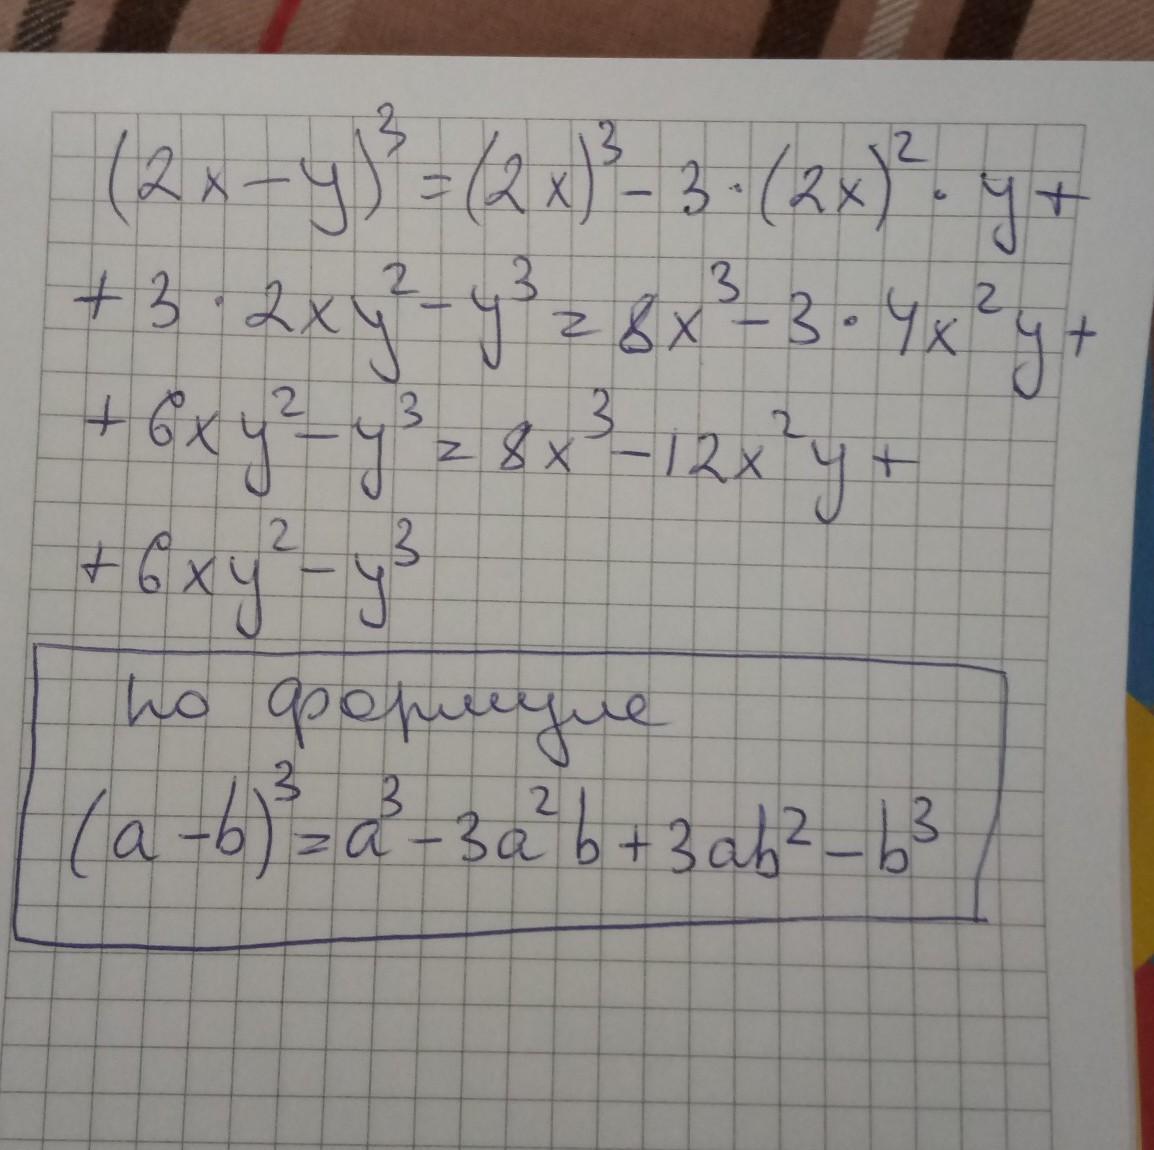 (2x-y)³=(2x)³-3·(2x)²·y+
+3·2xy²-y³=8x³-3·4x²y+
+6xy²-y³=8x³-12x²y+
+6xy²-y³
по формуле
(a-b)³=a³-3a²b+3ab²-b³